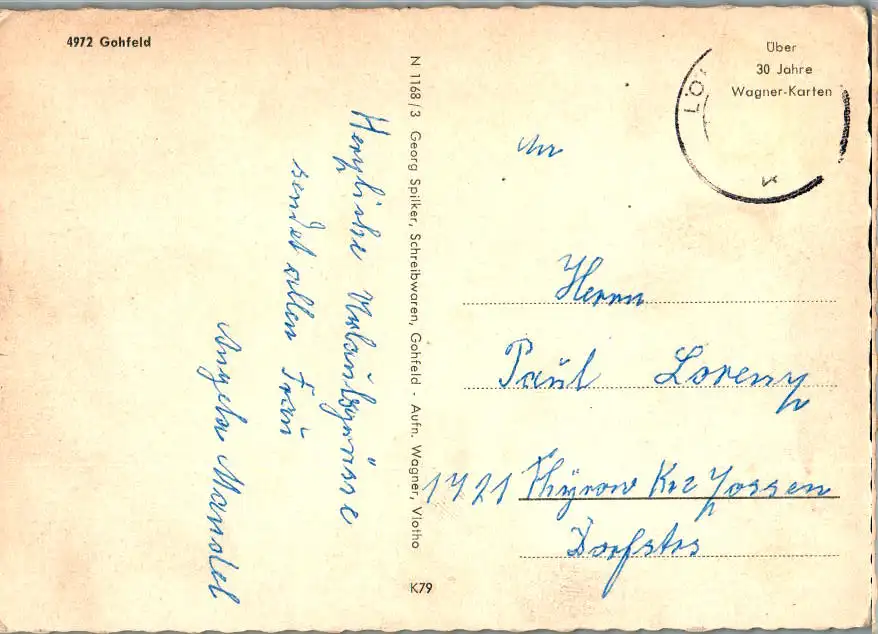 4972 Gohfeld
Herzliche Urlaubsgrüsse
sendet allen Frau
Angela Mandel
N 1168/3 Georg Spilker, Schreibwaren, Gohfeld - Aufn. Wagner, Vlotho
K79
Über
30 Jahre
Wagner-Karten
LÖ
An
Herrn
Paul Lorenz
1721 Thyrow Krs Zossen
Dorfstrs